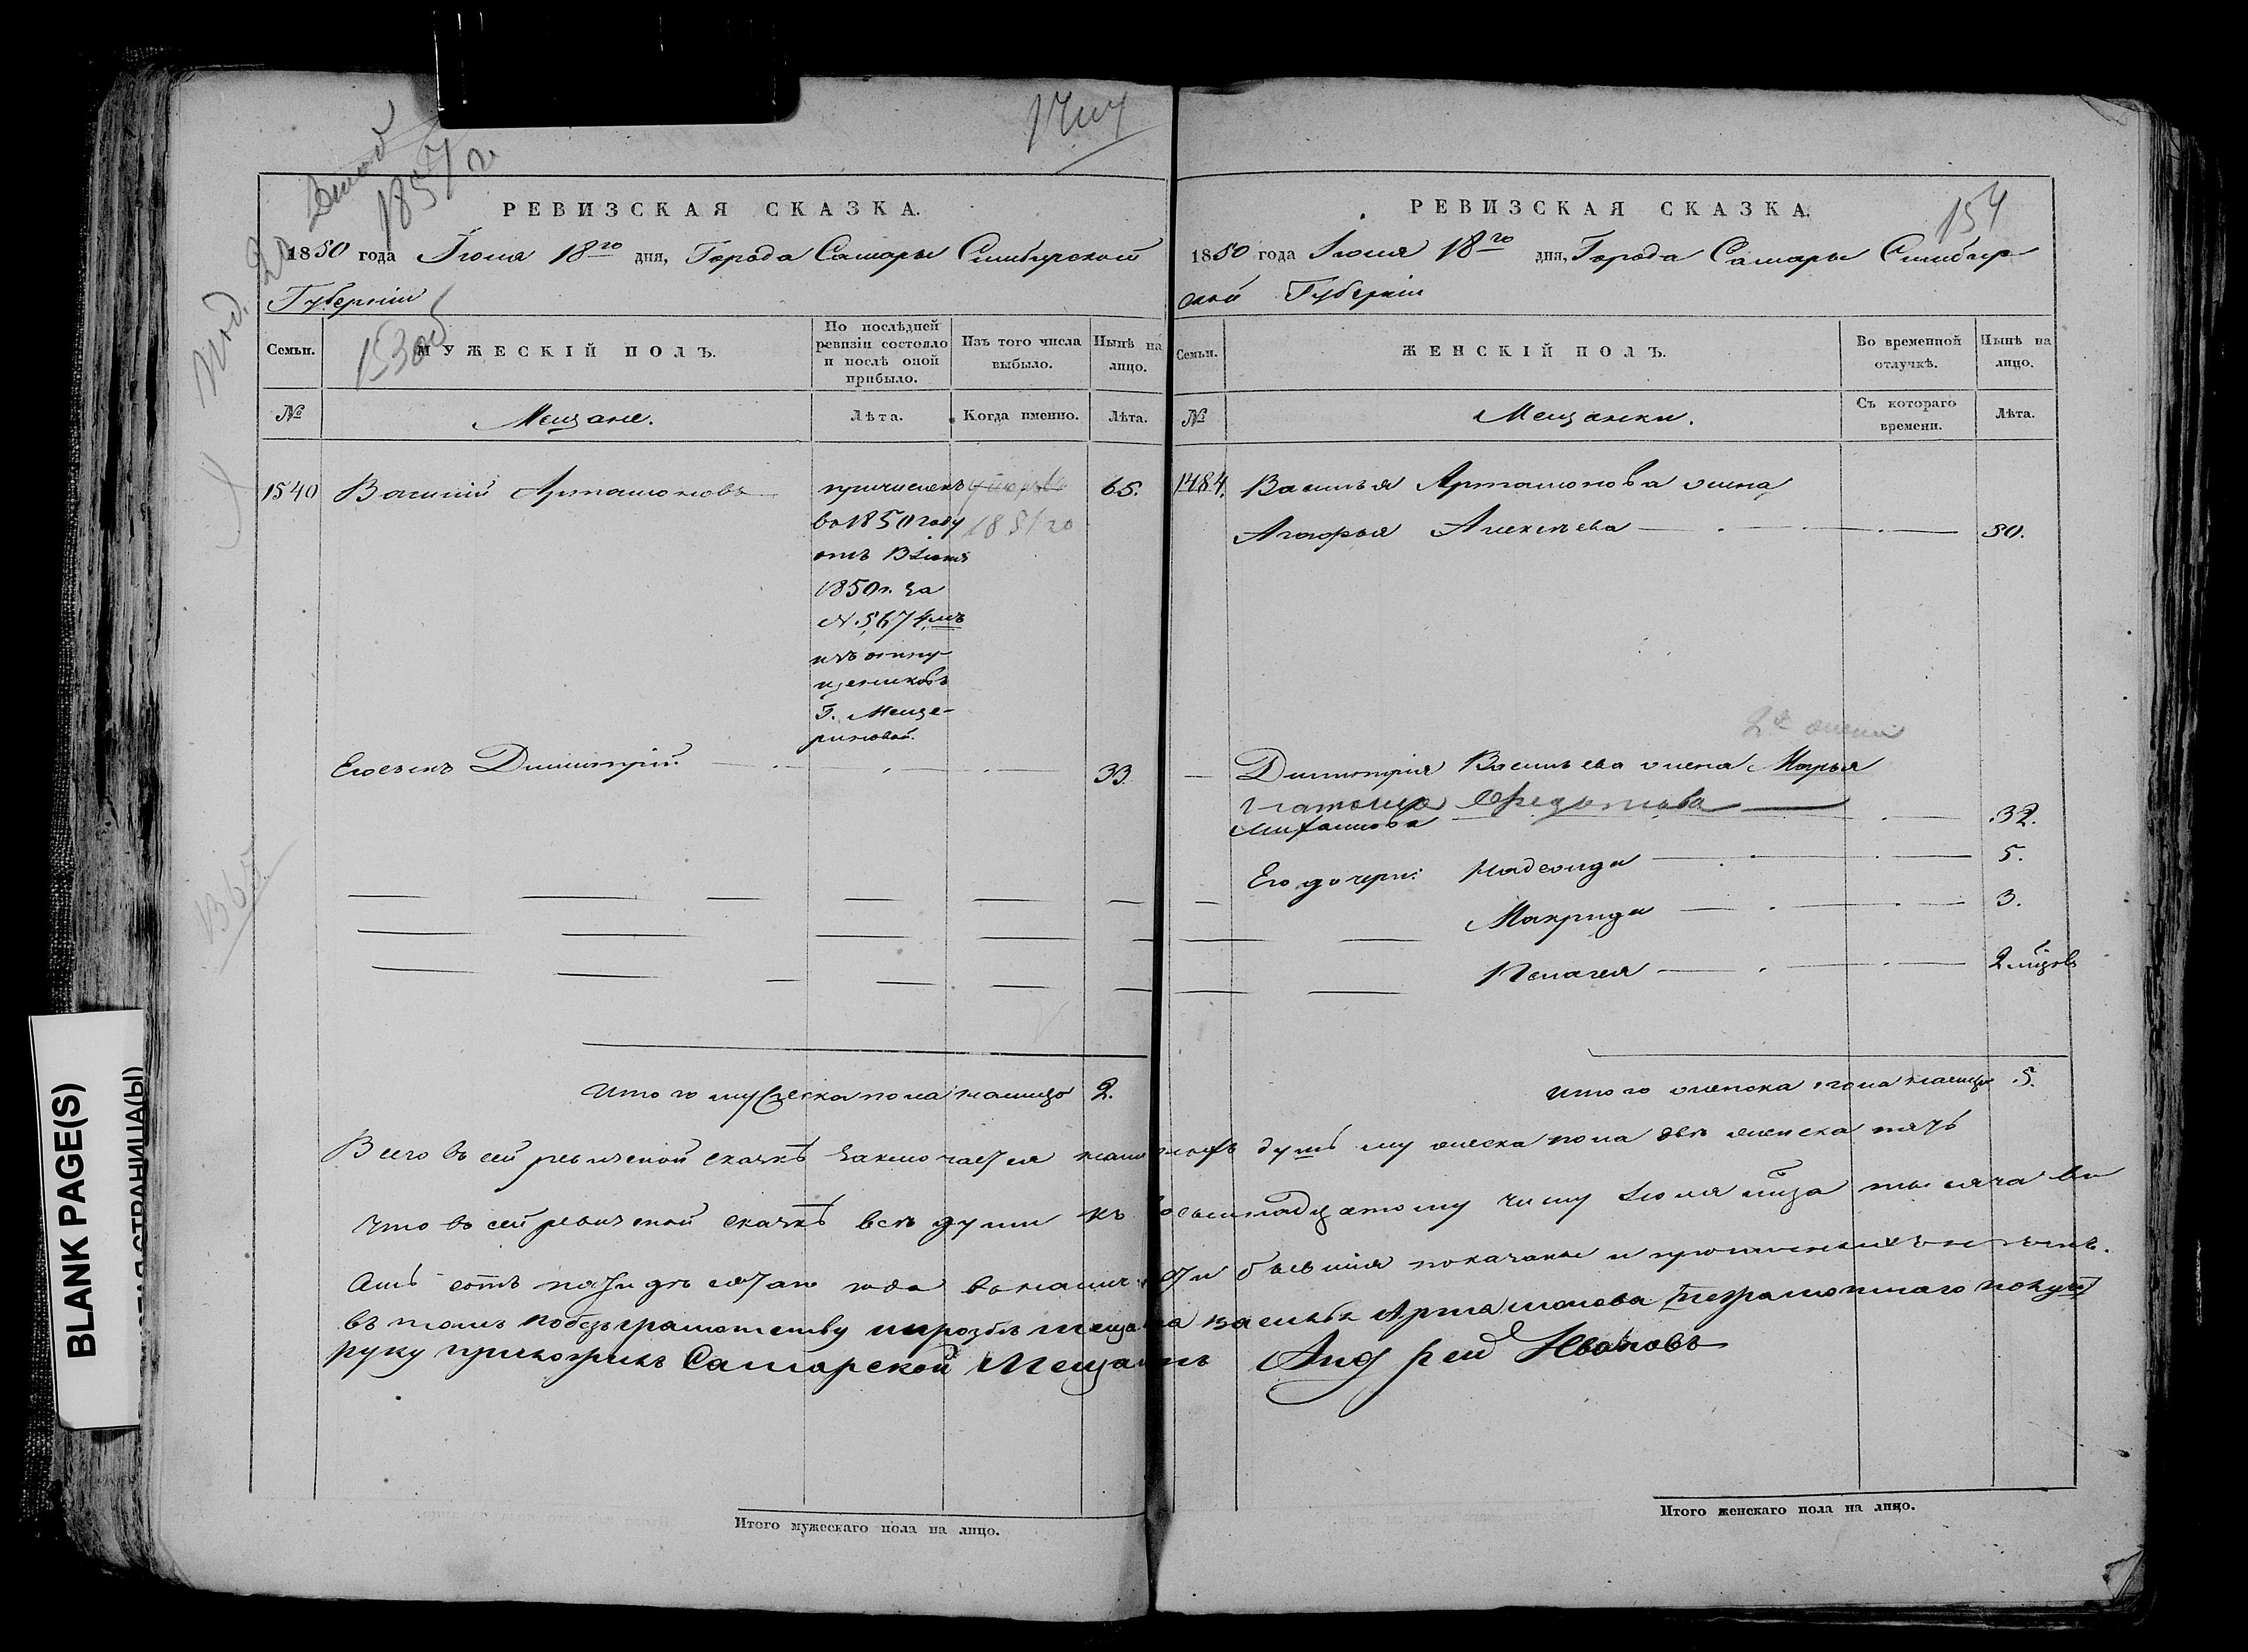 154
РЕВИЗСКАЯ СКАЗКА.
1850 года Іюня 18го дня, Города Самары Симбирской
Губерніи
Семьи.
МУЖЕСКІЙ ПОЛЪ.
По послѣдней ревизіи состояло и послѣ оной прибыло.
Изъ того числа выбыло.
Нынѣ на лицо.
№
Мещане.
Лѣта.
Когда именно.
Лѣта.
1540 Василій Артамоновъ
причисленъ
65.
во 1850 году
1851 го
отъ
1850 г. за
N 5674мъ
изъ отпу-
щенниковъ
Г. Меще-
риновой.
Его сынъ Димитрій
33.
Итого мужеска пола на лицо 2.
РЕВИЗСКАЯ СКАЗКА.
1850 года Іюня 18го дня, Города Самары Симбир
ской Губерніи
Семьи.
ЖЕНСКІЙ ПОЛЪ.
Во временной отлучкѣ.
Нынѣ на лицо.
№
Мещанки.
Съ котораго времени.
Лѣта.
1484. Василья Артамонова жена
Алексѣева 50.
2й жены
Димитрія Васильева жена Марья
32.
Его дочери: Надежда 5.
Макрида 3.
Пелагея 2 мѣсяцовъ
Итого женска пола на лицо 5.
Всего въ сей ревизской сказкѣ заключается наличныхъ душъ мужеска пола двѣ женска пять
Что въ сей ревизской сказкѣ всѣ души къ восьмнадцатому числу Іюня мѣсяца тысяча во
семь сотъ пятидесятаго года въ наличности бывшія показаны и прописныхъ нѣтъ.
въ томъ по безграмотству и прозбѣ мещанина Василья Артамонова
руку приложилъ Самарской Мещанинъ Андрей Ивановъ
Итого мужескаго пола на лицо.
Итого женскаго пола на лицо.
BLANK PAGE(S)